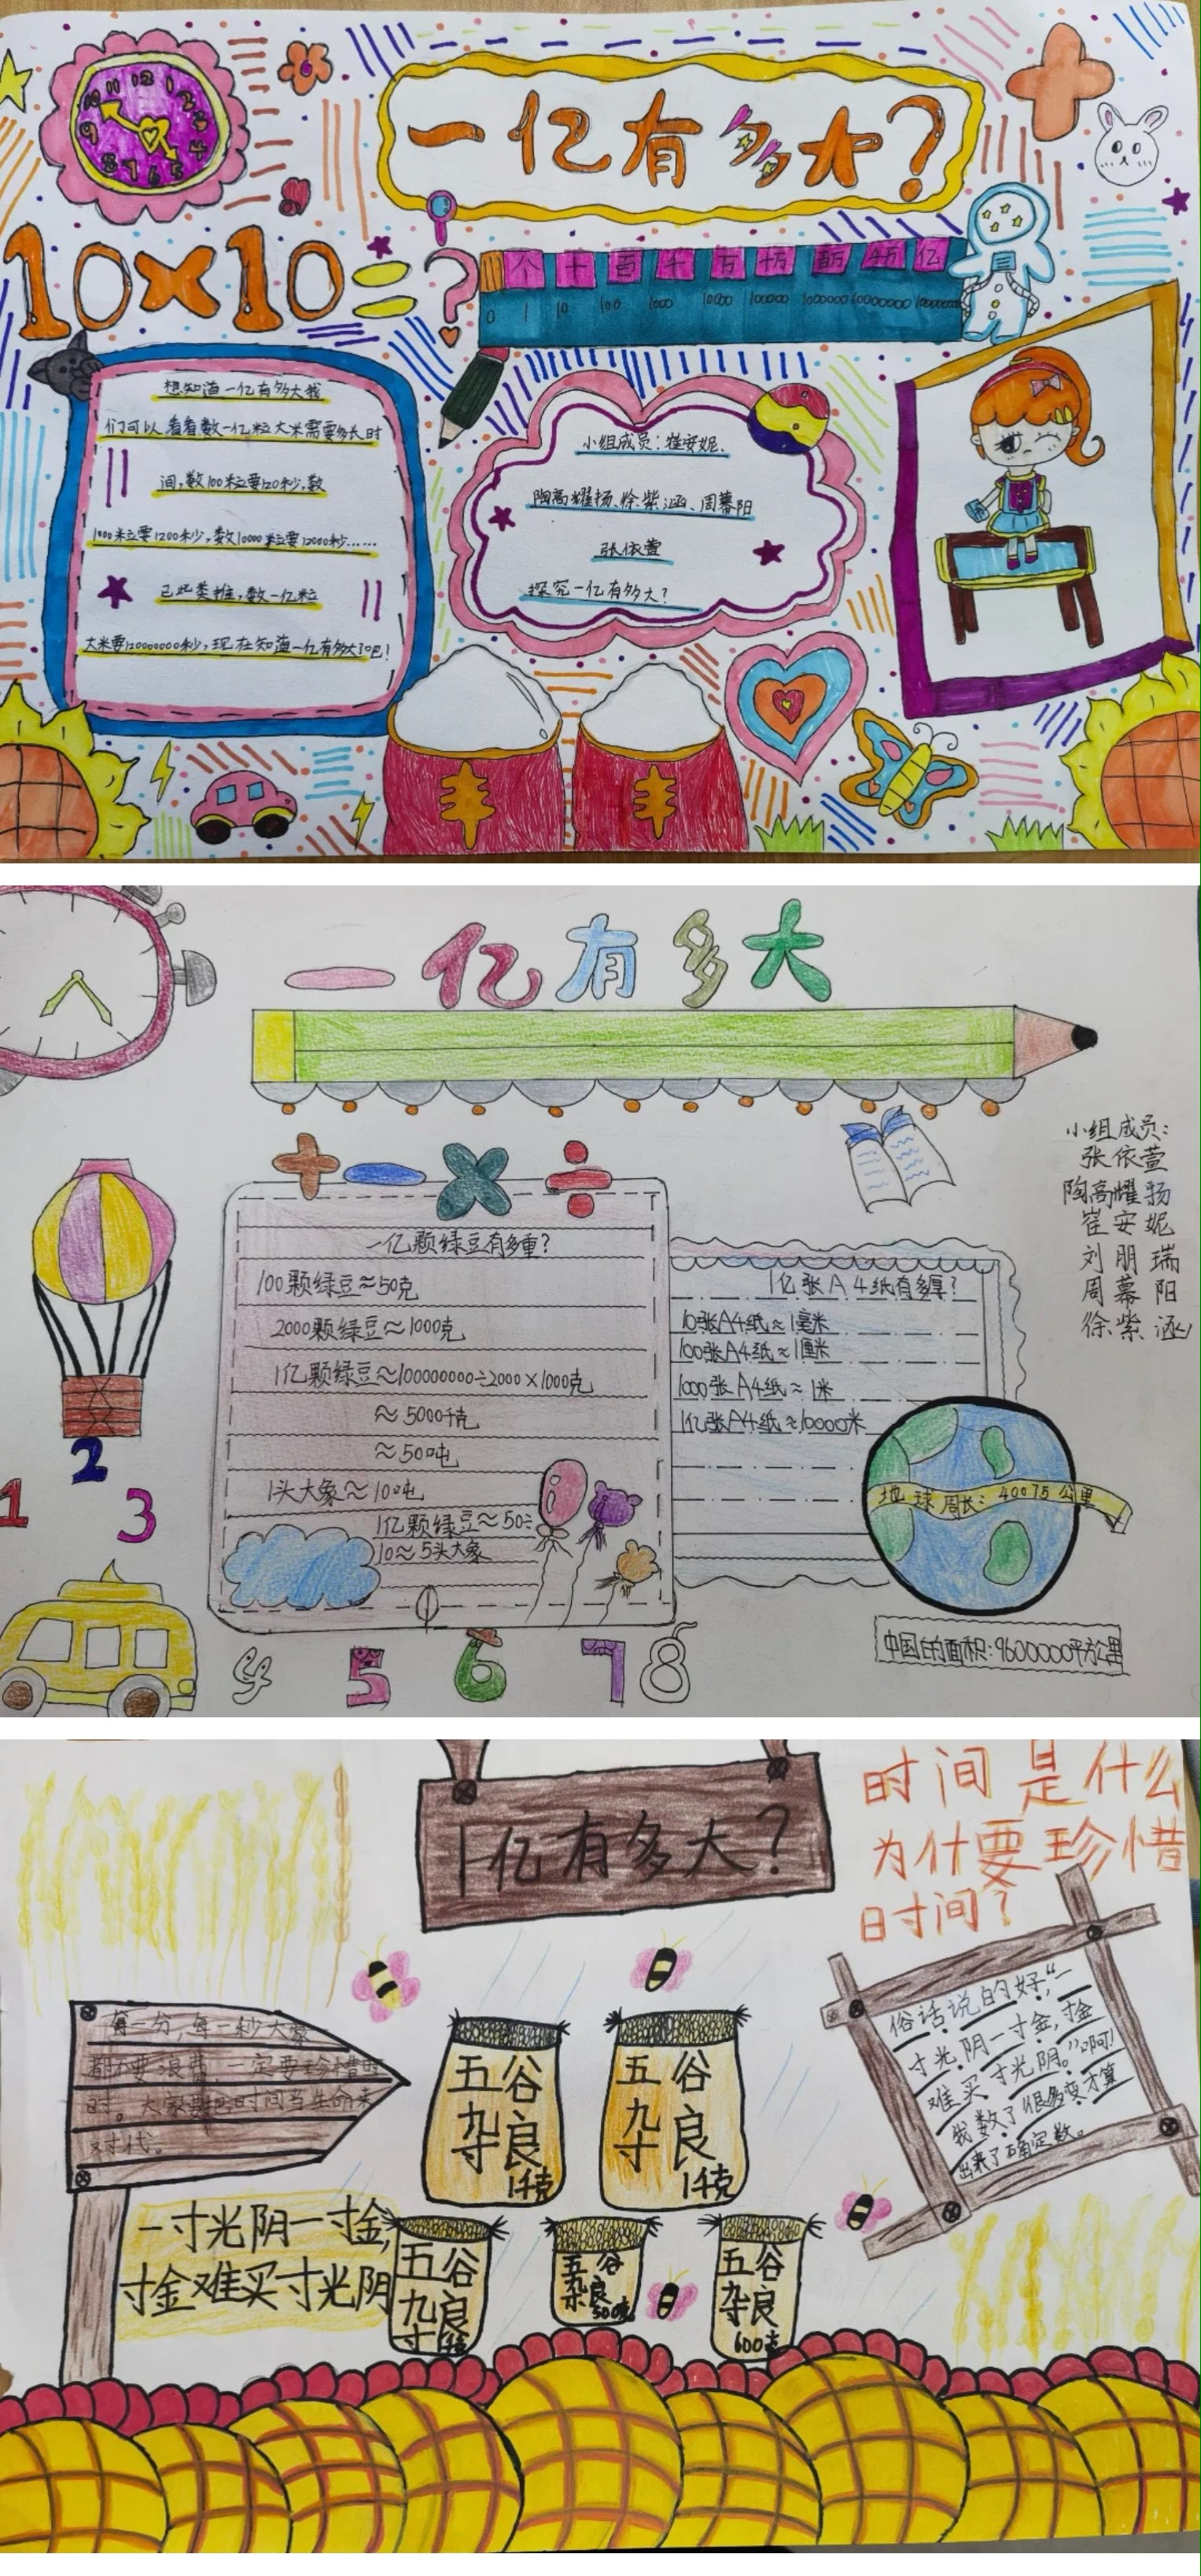 12
11
1
10
2
9
3
8
4
7
6
5
一亿有多大?
10×10=?
个 十 百 千 万 十万 百万 千万 亿
0 1 10 100 1000 10000 100000 1000000 10000000
想知道一亿有多大我
们可以看看数一亿粒大米需要多长时
间,数100粒要120秒,数
1000粒要1200秒,数10000粒要12000秒……
已此类推,数一亿粒
大米要120000000秒,现在知道一亿有多大了吧!
小组成员:崔安妮、
陶高耀扬、徐紫涵、周幕阳
张依萱
探究一亿有多大?
一亿有多大
小组成员:
张依萱
陶高耀扬
崔安妮
刘朋瑞
周幕阳
徐紫涵
+ − × ÷
一亿颗绿豆有多重?
100颗绿豆≈50克
2000颗绿豆≈1000克
1亿颗绿豆≈100000000÷2000×1000克
≈5000千克
≈50吨
1头大象≈10吨
1亿颗绿豆≈50÷
10≈5头大象
1亿张A4纸有多厚?
10张A4纸≈1毫米
100张A4纸≈1厘米
1000张A4纸≈1米
1亿张A4纸≈10000米
地球周长:40075公里
中国的面积:9600000平方公里
1
2
3
4 5 6 7 8
1亿有多大?
时间是什么
为什要珍惜
时间?
每一分,每一秒大家
都不要浪费,一定要珍惜时
时。大家要把时间当生命来
对代。
一寸光阴一寸金,
寸金难买寸光阴
五谷
杂良
1千克
五谷
杂良
1千克
五谷
杂良
五谷
杂良
500克
五谷
杂良
600克
俗话说的好,“一
寸光阴一寸金,寸金
难买寸光阴。”啊!
我数了很多变才算
出来了确定数。